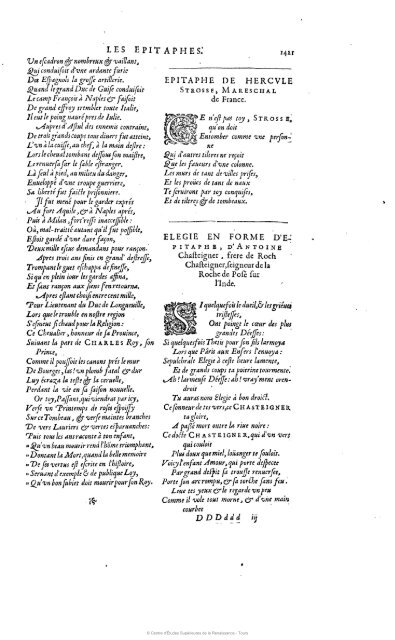 LES EPITAPHES. 1421
Un escadron & nombreux & vaillant,
Qui conduisoit d'une ardante furie
Du Espagnols la grosse artillerie.
Quand le grand Duc de Guise conduisoit
Le camp François à Naples & faisoit
De grand effroy trembler toute Italie,
Il eut le poing navré pres de Iulie.
Aupres d'Ast des ennemis contraint,
De trois grands coups tous divers fut atteint,
L'un à la cuisse, au chef, à la main destre:
Lors le cheval tombant dessous son maistre,
Le renversa sur le sable estranger.
Là seul à pied, au milieu du danger,
Enveloppé d'une troupe guerriere,
Sa liberté fut faitte prisonniere.
Il fut mené pour le garder exprés
Au fort Aquile, & à Naples aprés,
Puis à Milan, forteresse inaccessible:
Où, mal-traitté autant qu'il fut possible,
Estoit gardé d'une dure façon,
Deux mille escus demandans pour rançon.
Apres trois ans finis en grand' destresse,
Trompant le guet eschappa de finesse,
Si qu'en plein jour les gardes affina,
Et sans rançon aux siens s'en retourna.
Apres estant choisi entre cent mille,
Pour Lieutenant du Duc de Longueville,
Lors que le trouble en nostre region
S'esmeut si chaud pour la Religion:
Ce Chevalier, honneur de sa Province,
Suivant la part de CHARLES Roy, son
Prince,
Comme il poussoit les canons prés le mur
De Bourges, las! un plomb fatal & dur
Luy écraza la teste & la cervelle,
Perdant la vie en sa saison nouvelle.
Or toy, Passant, qui viendras par icy,
Verse un Printemps de roses espoissy
Sur ce Tombeau, & verse maintes branches
De vers Lauriers & vertes espervanches:
Puis tous les ans raconte à ton enfant,
„ Qu'un beau mourir rend l'hôme triomphant,
„ Dontant la Mort, quand la belle memoire
„ De son vertus est escrite en l'histoire,
„ Servant d'exemple & de publique Loy,
„ Qu'un bon subiet doit mourir pour son Roy.
EPITAPHE DE HERCULE
STROSSE, MARESCHAL
de France.
CE n'est pas toy, STROSSE,
qu'on doit
Entomber comme une person-
ne
Qui d'autres titres ne reçoit
Que les faveurs d'une colonne.
Les murs de tant de villes prises,
Et les proües de tant de naus
Te serviront par toy conquises,
Et de titres & de tombeaux.
ELEGIE EN FORME D'E-
PITAPHE, D'ANTOINE
Chasteigner, frere de Roch
Chasteigner, seigneur de la
Roche de Posé sur
l'Inde.
SI quelquefois le dueil, & les griéves
tristesses,
Ont poingt le cœur des plus
grandes Déesses:
Si quelquefois Thetis pour son fils larmoya
Lors que Pâris aux Enfers l'envoya:
Sepulchrale Elegie à ceste heure lamente,
Et de grands coups ta poitrine tourmente.
Ah! larmeuse Déesse: ah! vray'ment oren-
droit
Tu auras nom Elegie à bon droict.
Ce sonneur de tes vers, ce CHASTEIGNER
ta gloire,
A passé mort outre la rive noire:
Ce docte CHASTEIGNER, qui d'un vers
qui couloit
Plus doux que miel, loüanger te souloit.
Voicy l'enfant Amour, qui porte despecee
Par grand despit sa trousse renversee,
Porte son arc rompu, & sa torche sans feu.
Leve tes yeux & le regarde un peu
Comme il vole tout morne, & d'une main
courbee
DDDddd iij
© Centre d'Études Supérieures de la Renaissance - Tours